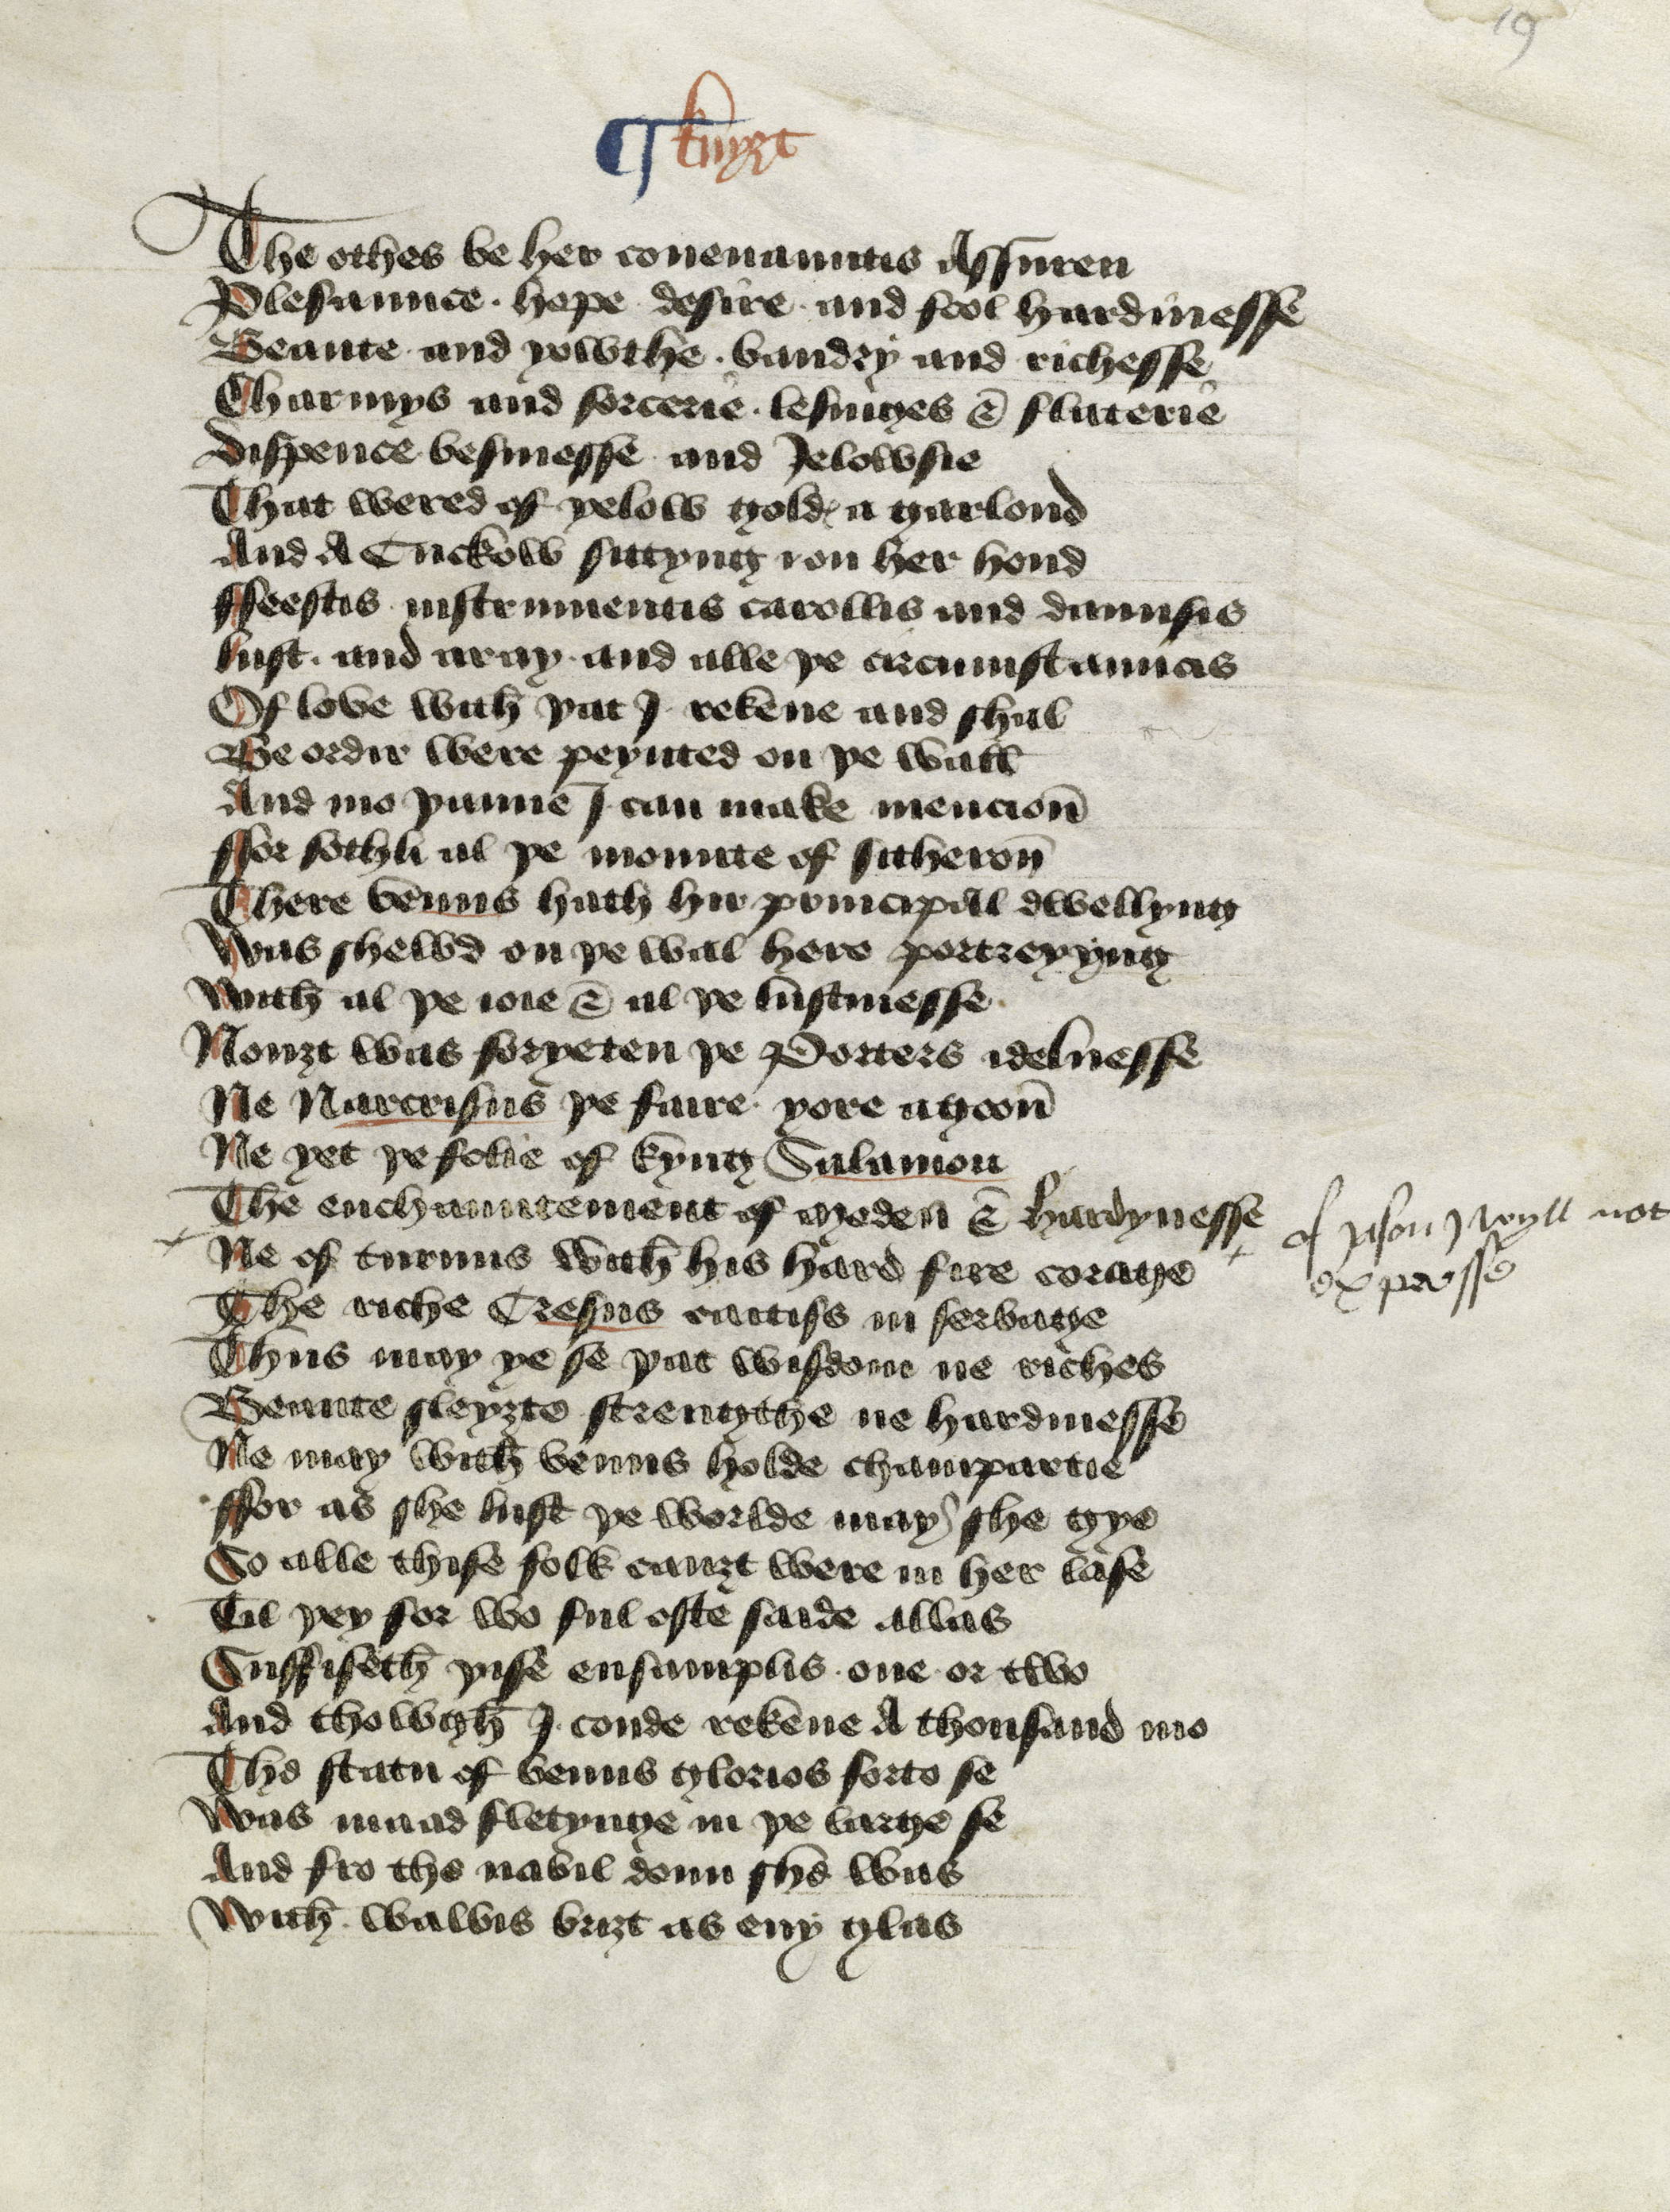 19
¶ knyȝt
The othes be her couenauntis Assuren
Plesaunce · hope · desire · and fool hardinesse
Beaute · and yowthe · baudry and richesse
Charmys and sorcerie · lesinges & flaterie
Dispence besinesse and Jelowsie
That wered of yelow gold · a garlond
And A Cuckow sittyng ion her hond
ffeestis instrumentis carollis and daunsis
lust · and aray · and alle þe circumstauncis
Of love with þat I rekene and shal
Be ordir were peynted on þe wall
And mo þanne I can make mencion̄
ffor sothli al þe mounte of sitheron̄
There venus hath hir principall dwellyng
Was shewd on þe wal here portreyyng
With al þe ioie & al þe lustinesse
Nouȝt was forȝeten þe Porters idelnesse
Ne Narcrisus þe faire · yore agoon̄
Ne yet þe folie of kyng Salamon
The enchauntement of Medea & hardynesse
of Jason J wyll not
expresse
Ne of turnus with his hard fire corage
The riche Cresus caitifs in servage
Thus may ye se þat wisdom ne riches
Beaute sleyȝte strengthe ne hardinesse
Ne may with venus holde champartie
ffor as she lust þe worlde may she gye
So alle thise folk cauȝt were in her lase
Til þey for wo ful ofte saide allas
Suffiseth þise ensamplis · one or two
And thowgh I coude rekene A thousand mo
The statu of venus glorios forto se
Was maad fletynge in þe large se
And fro the navil doun she was
With wawis briȝt as eny glas